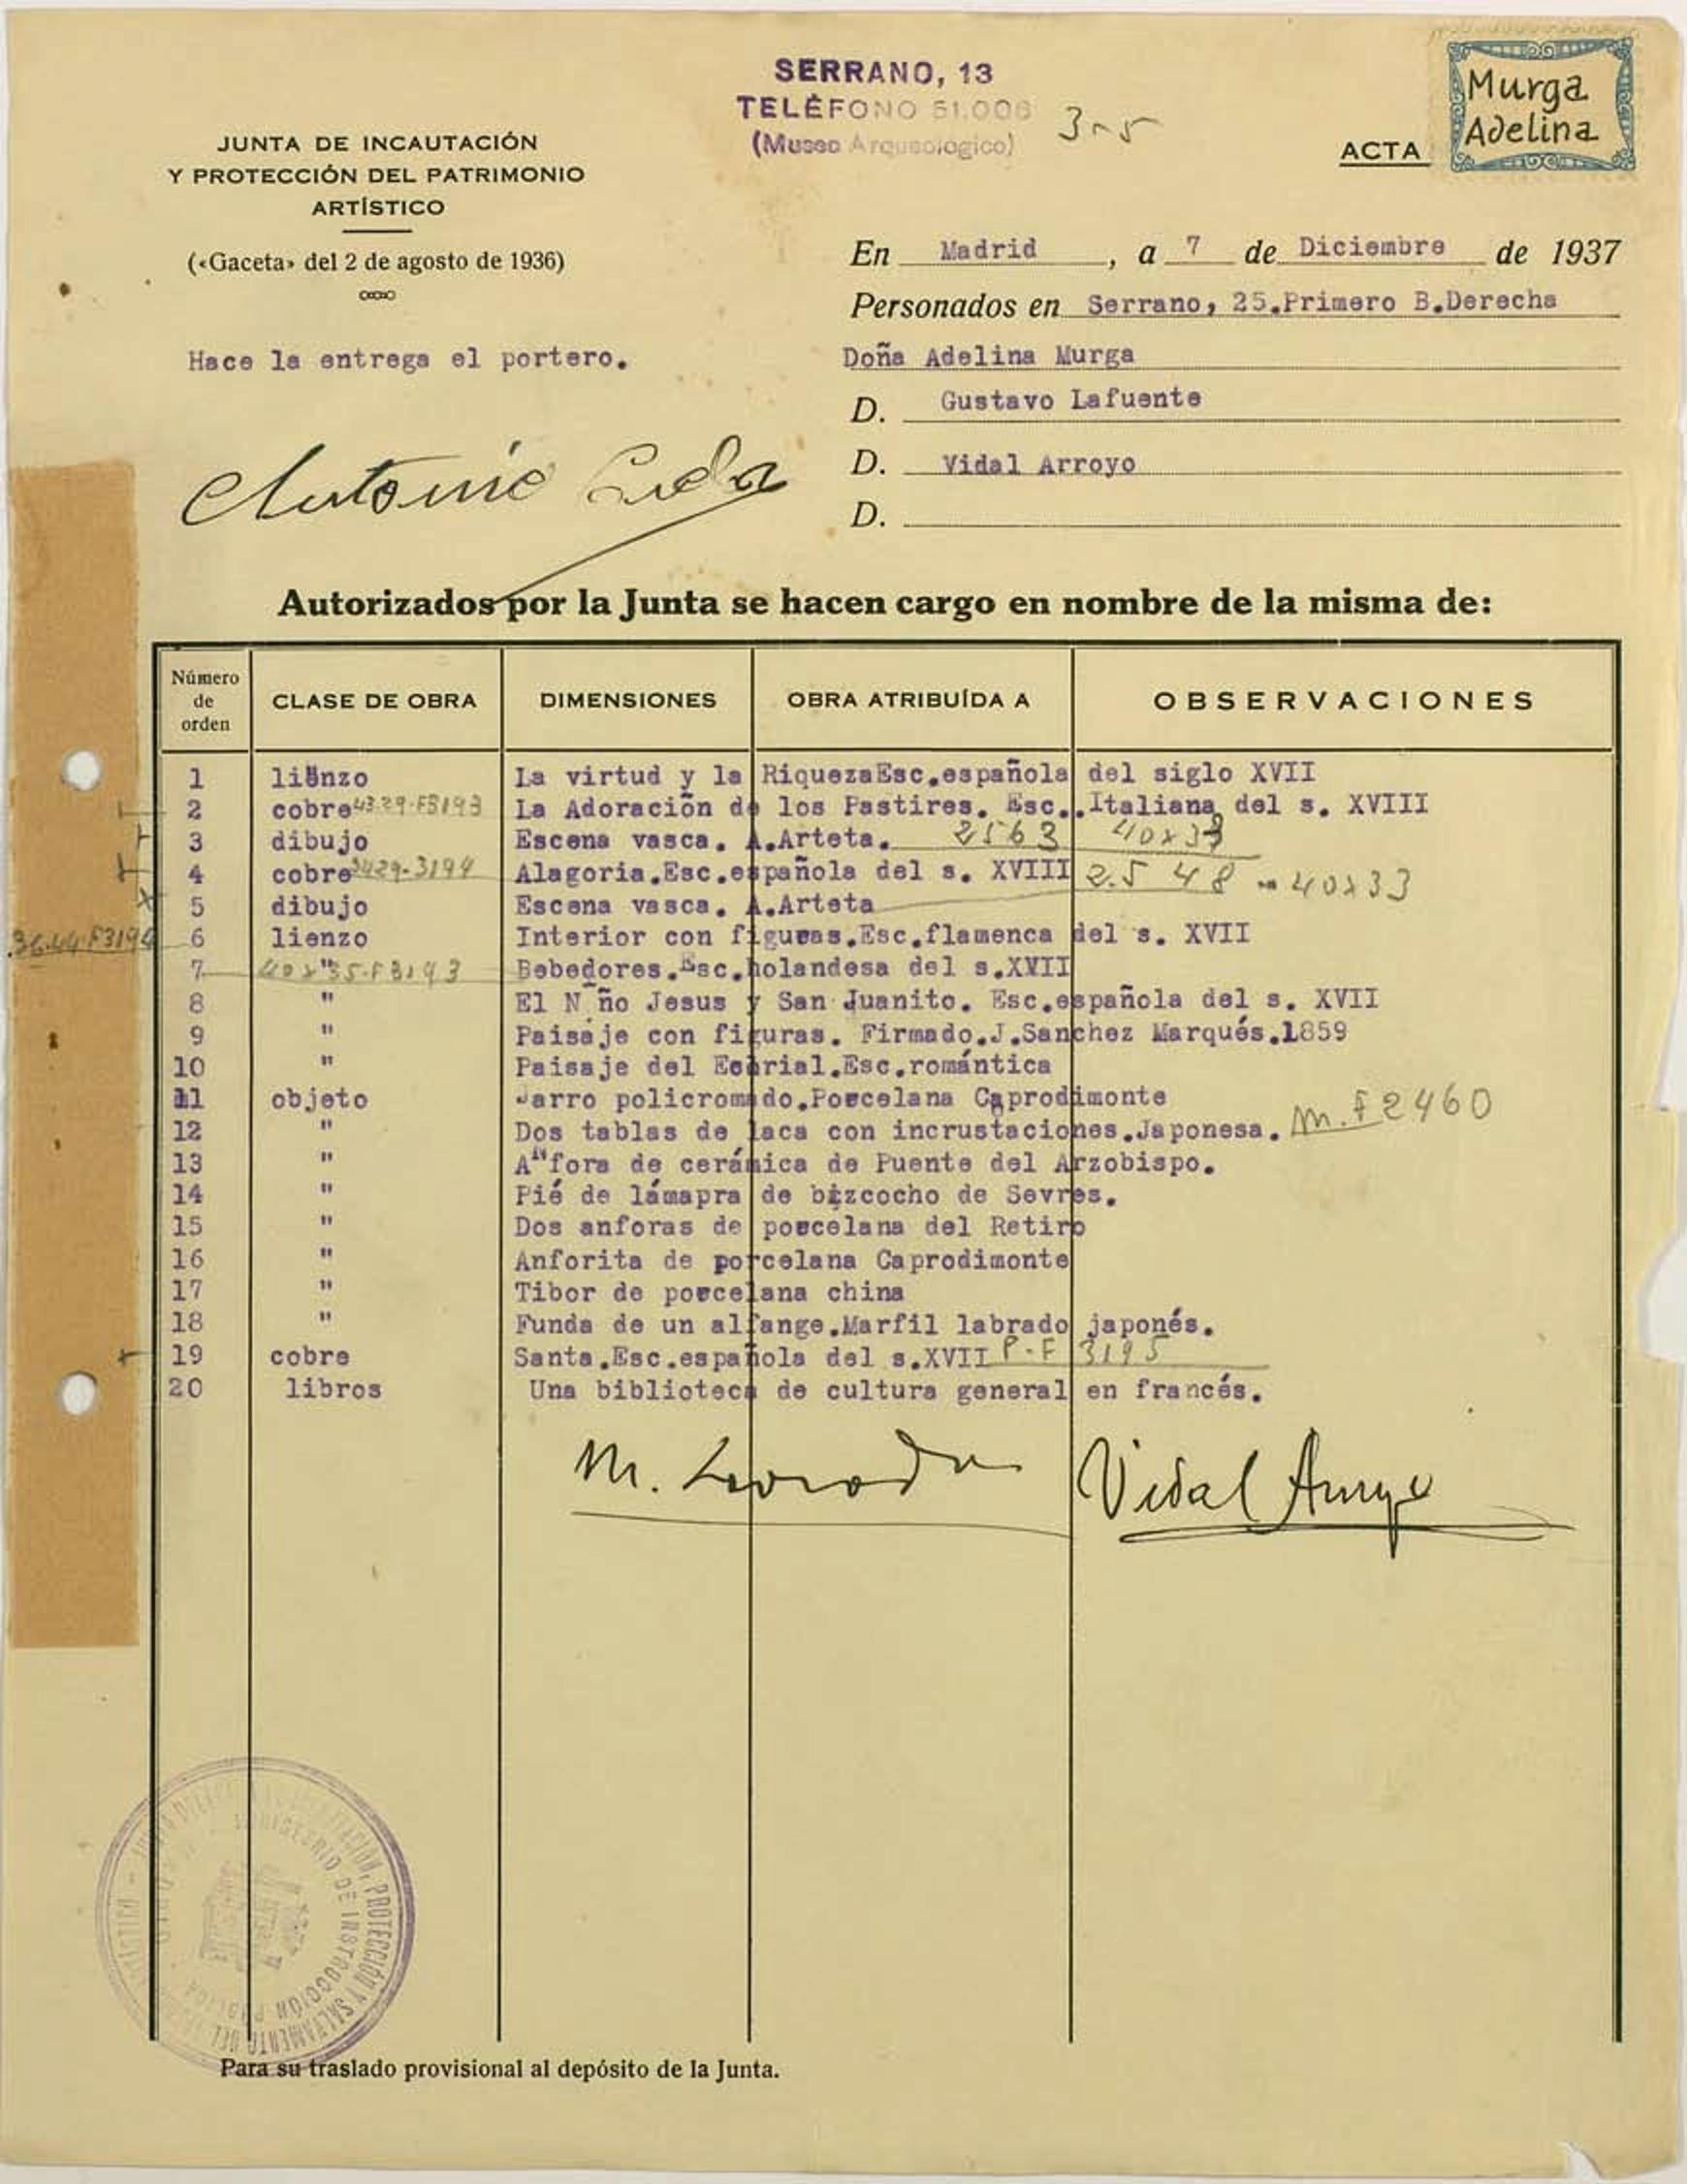 SERRANO, 13
TELÉFONO 51.006
(Museo Arqueologico)
3-5
Murga
Adelina
ACTA
JUNTA DE INCAUTACIÓN
Y PROTECCIÓN DEL PATRIMONIO
ARTÍSTICO
(«Gaceta» del 2 de agosto de 1936)
En Madrid, a 7 de Diciembre de 1937
Personados en Serrano, 25.Primero B.Derecha
Hace la entrega el portero.
Doña Adelina Murga
D. Gustavo Lafuente
D. Vidal Arroyo
D.
Antonio
Autorizados por la Junta se hacen cargo en nombre de la misma de:
Número de orden CLASE DE OBRA DIMENSIONES OBRA ATRIBUÍDA A OBSERVACIONES
1 lienzo La virtud y la RiquezaEsc.española del siglo XVII
2 cobre 43.29-F3193 La Adoración de los Pastires. Esc..Italiana del s. XVIII
3 dibujo Escena vasca. A.Arteta. 2563 40x33
4 cobre 3429-3194 Alagoria.Esc.española del s. XVIII 2.548 - 40x33
5 dibujo Escena vasca. A.Arteta
36.44.F3194 6 lienzo Interior con figuras.Esc.flamenca del s. XVII
7 " 40x35-F3193 Bebedores.Esc.holandesa del s.XVII
8 " El N ño Jesus y San Juanito. Esc.española del s. XVII
9 " Paisaje con figuras. Firmado.J.Sanchez Marqués.1859
10 " Paisaje del Escrial.Esc.romántica
11 objeto Jarro policromado.Porcelana Caprodimonte
12 " Dos tablas de laca con incrustaciones.Japonesa. M.F2460
13 " Anfora de cerámica de Puente del Arzobispo.
14 " Pié de lámapra de bizcocho de Sevres.
15 " Dos anforas de porcelana del Retiro
16 " Anforita de porcelana Caprodimonte
17 " Tibor de porcelana china
18 " Funda de un alfange.Marfil labrado japonés.
19 cobre Santa.Esc.española del s.XVII P-F 3195
20 libros Una biblioteca de cultura general en francés.
M.
Vidal Arroyo
PROTECCIÓN Y SALVAMENTO DEL
MINISTERIO DE INSTRUCCIÓN PÚBLICA
Para su traslado provisional al depósito de la Junta.